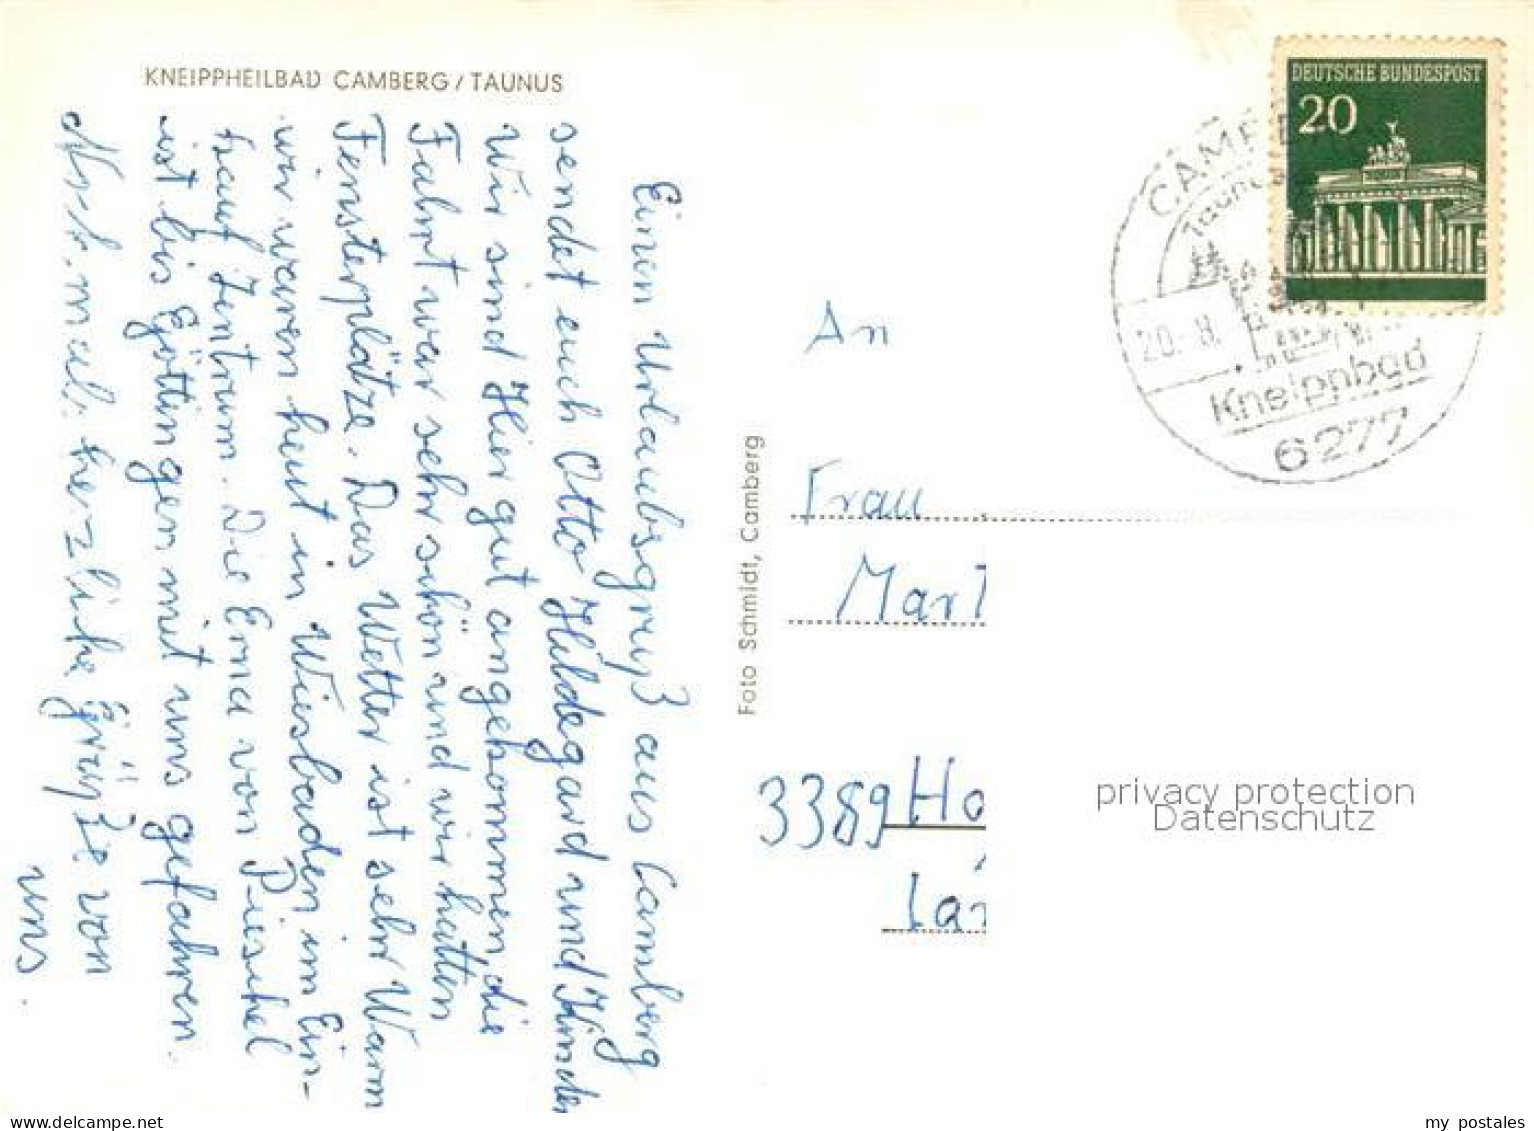 KNEIPPHEILBAD CAMBERG / TAUNUS
Einen Urlaubsgruß aus Camberg
sendet euch Otto Hildegard und Kinder
Wir sind Hier gut angekommen, die
Fahrt war sehr schön und wir hatten
Fensterplätze. Das Wetter ist sehr Warm
wir waren heut in Wiesbaden im Ein-
kauf Zentrum. Die Erna von Pieschel
ist bis Göttingen mit uns gefahren.
Noch mals herzliche Grüße von
uns.
Foto Schmidt, Camberg
DEUTSCHE BUNDESPOST
20
CAMBERG
Taunus
20.-8.
Kneippbad
6277
An
Frau
Mart
3389 Ho
privacy protection
Datenschutz
my postales